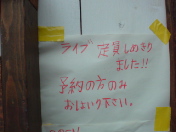 ライブ 定員しめきり
ました!!
予約の方のみ
おはいり下さい。